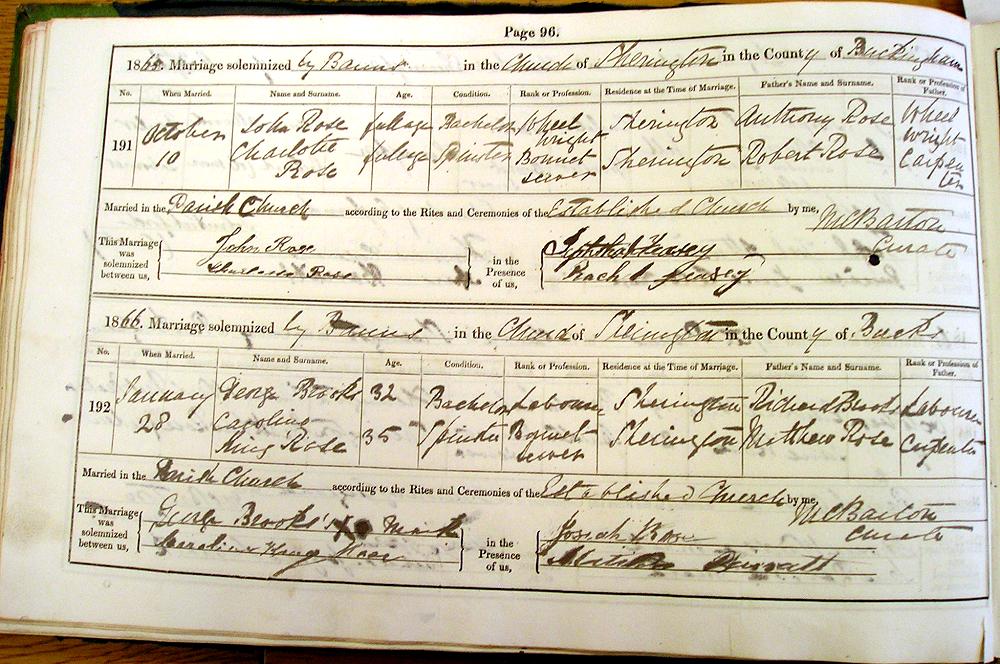 Page 96.
1865. Marriage solemnized by Banns in the Church of Sherington in the County of Buckingham
No. When Married. Name and Surname. Age. Condition. Rank or Profession. Residence at the Time of Marriage. Father's Name and Surname. Rank or Profession of Father.
191 October 10 John Rose full age Bachelor Wheel wright Sherington Anthony Rose Wheel wright
Charlotte Rose full age Spinster Bonnet sewer Sherington Robert Rose Carpen ter
Married in the Parish Church according to the Rites and Ceremonies of the Established Church by me, W C Barton
Curate
This Marriage was solemnized between us, John Rose
Rose
in the Presence of us,
1866. Marriage solemnized by Banns in the Church of Sherington in the County of Bucks
No. When Married. Name and Surname. Age. Condition. Rank or Profession. Residence at the Time of Marriage. Father's Name and Surname. Rank or Profession of Father.
192 January 28 George Brooks 32 Bachelor Labourer Sherington Richard Brooks Labourer
Caroline King Rose 35 Spinster Bonnet sewer Sherington Matthew Rose Carpenter
Married in the Parish Church according to the Rites and Ceremonies of the Established Church by me, W C Barton
Curate
This Marriage was solemnized between us, George Brooks' X Mark
Caroline King Rose
in the Presence of us, Josiah Rose
Matilda